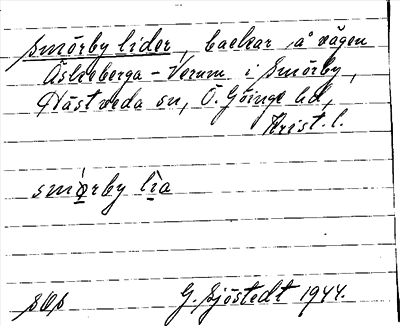 Smörby lider, backar å vägen
Äskeberga - Verum i Smörby,
Hästveda sn, Ö. Göinge hd,
Krist. l.
smǫ́rby li̱a
G. Sjöstedt 1944.